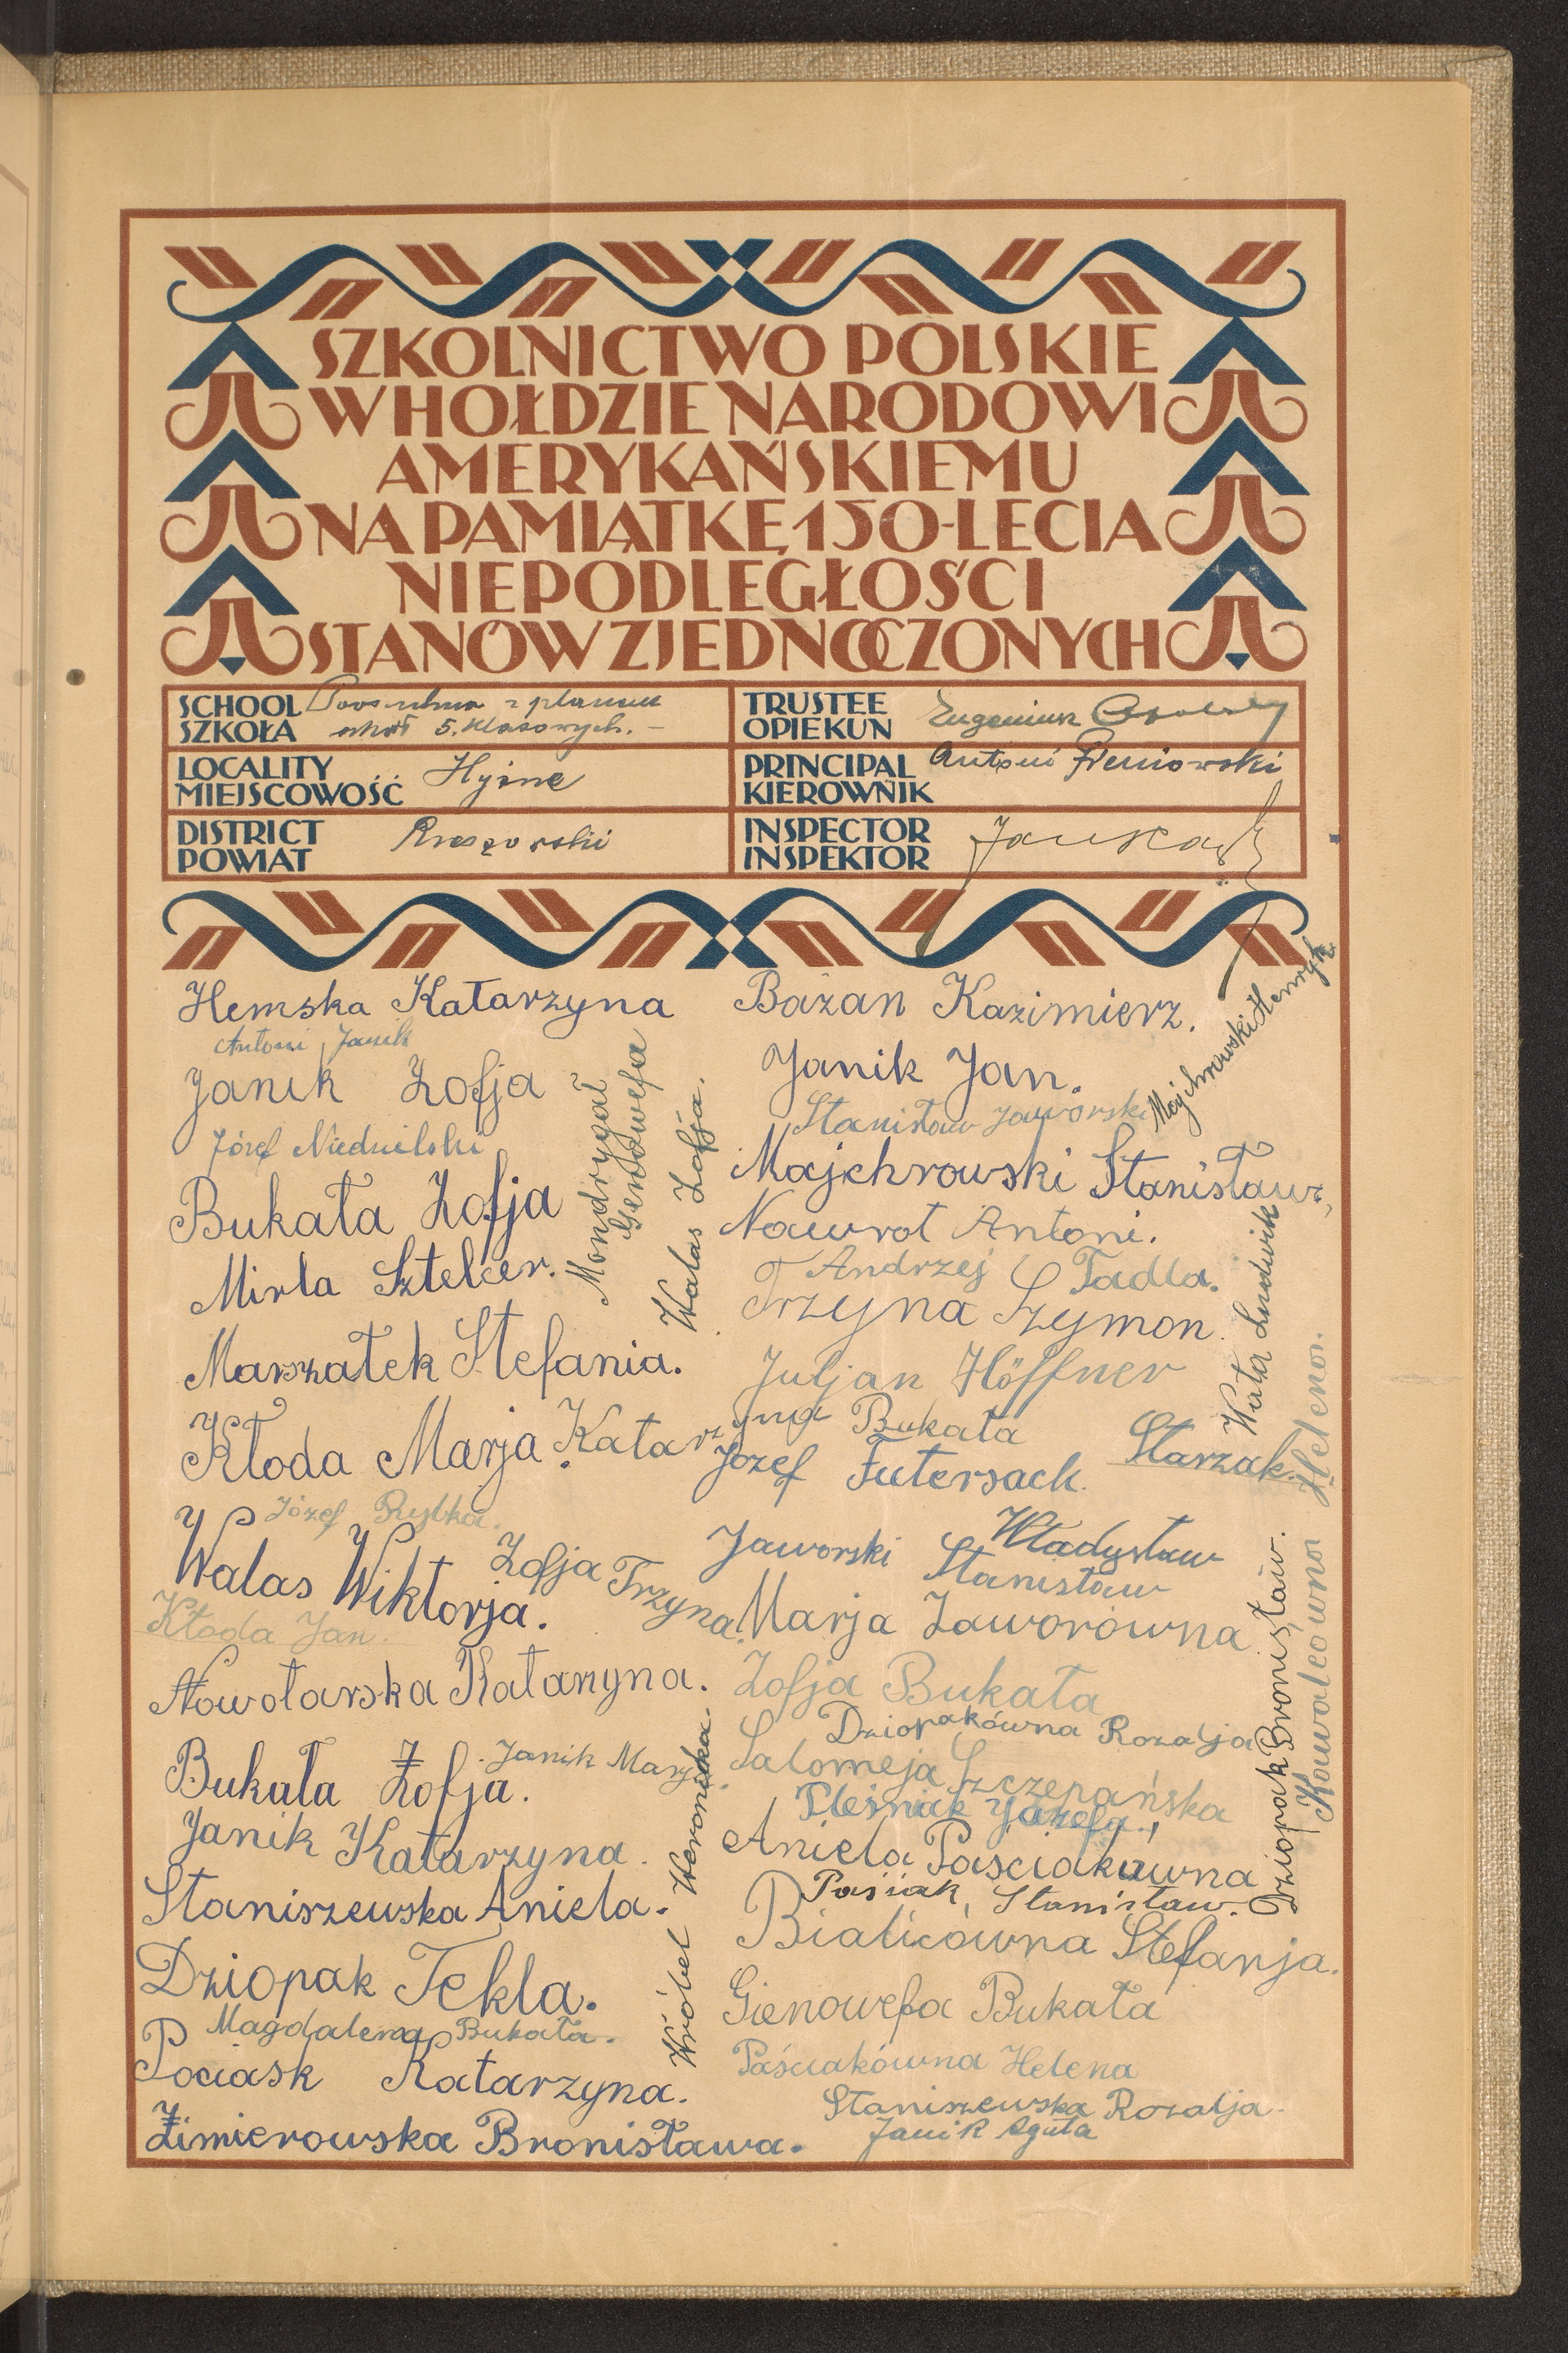 SZKOLNICTWO POLSKIE
W HOŁDZIE NARODOWI
AMERYKAŃSKIEMU
NA PAMIĄTKĘ 150-LECIA
NIEPODLEGŁOŚCI
STANÓW ZJEDNOCZONYCH
SCHOOL
SZKOŁA
z planem
szkół 5. klasowych. –
TRUSTEE
OPIEKUN
Eugeniusz
LOCALITY
MIEJSCOWOŚĆ
Hyżne
PRINCIPAL
KIEROWNIK
Antoni Pieniowski
DISTRICT
POWIAT
Rzeszowski
INSPECTOR
INSPEKTOR
Hemska Katarzyna
Antoni Janik
Janik Zofja
Józef Niedzielski
Bukała Zofja
Mirla Sztelcer.
Marszałek Stefania.
Kłoda Marja.
Katarzyna Bukała
Józef Rybka.
Walas Wiktorja.
Zofja Trzyna.
Kłoda Jan.
Nowotarska Katarzyna.
Janik Marja.
Bukała Zofja.
Janik Katarzyna.
Staniszewska Aniela.
Dziopak Tekla.
Magdalena Bukała.
Pociask Katarzyna.
Zimierowska Bronisława.
Mondrygał
Genowefa
Walas Zofja.
Wróbel Weronika.
Bażan Kazimierz.
Janik Jan.
Stanisław Jaworski
Majchrowski Henryk
Majchrowski Stanisław,
Nawrot Antoni.
Andrzej Tadla.
Trzyna Szymon.
Juljan Höffner
Józef Futersack.
Starzak
Władysław
Jaworski Stanisław
Marja Zaworówna
Zofja Bukała
Dziopakówna Rozalja
Salomeja Szczepańska
Pleśniak Józefa.
Aniela Paściakówna
Pasiak, Stanisław.
Bialicówna Stefanja.
Gienowefa Bukała
Paściakówna Helena
Staniszewska Rozalja
Janik Agata
Ludwik
Dziopak Bronisław.
Kowalcówna Helena.